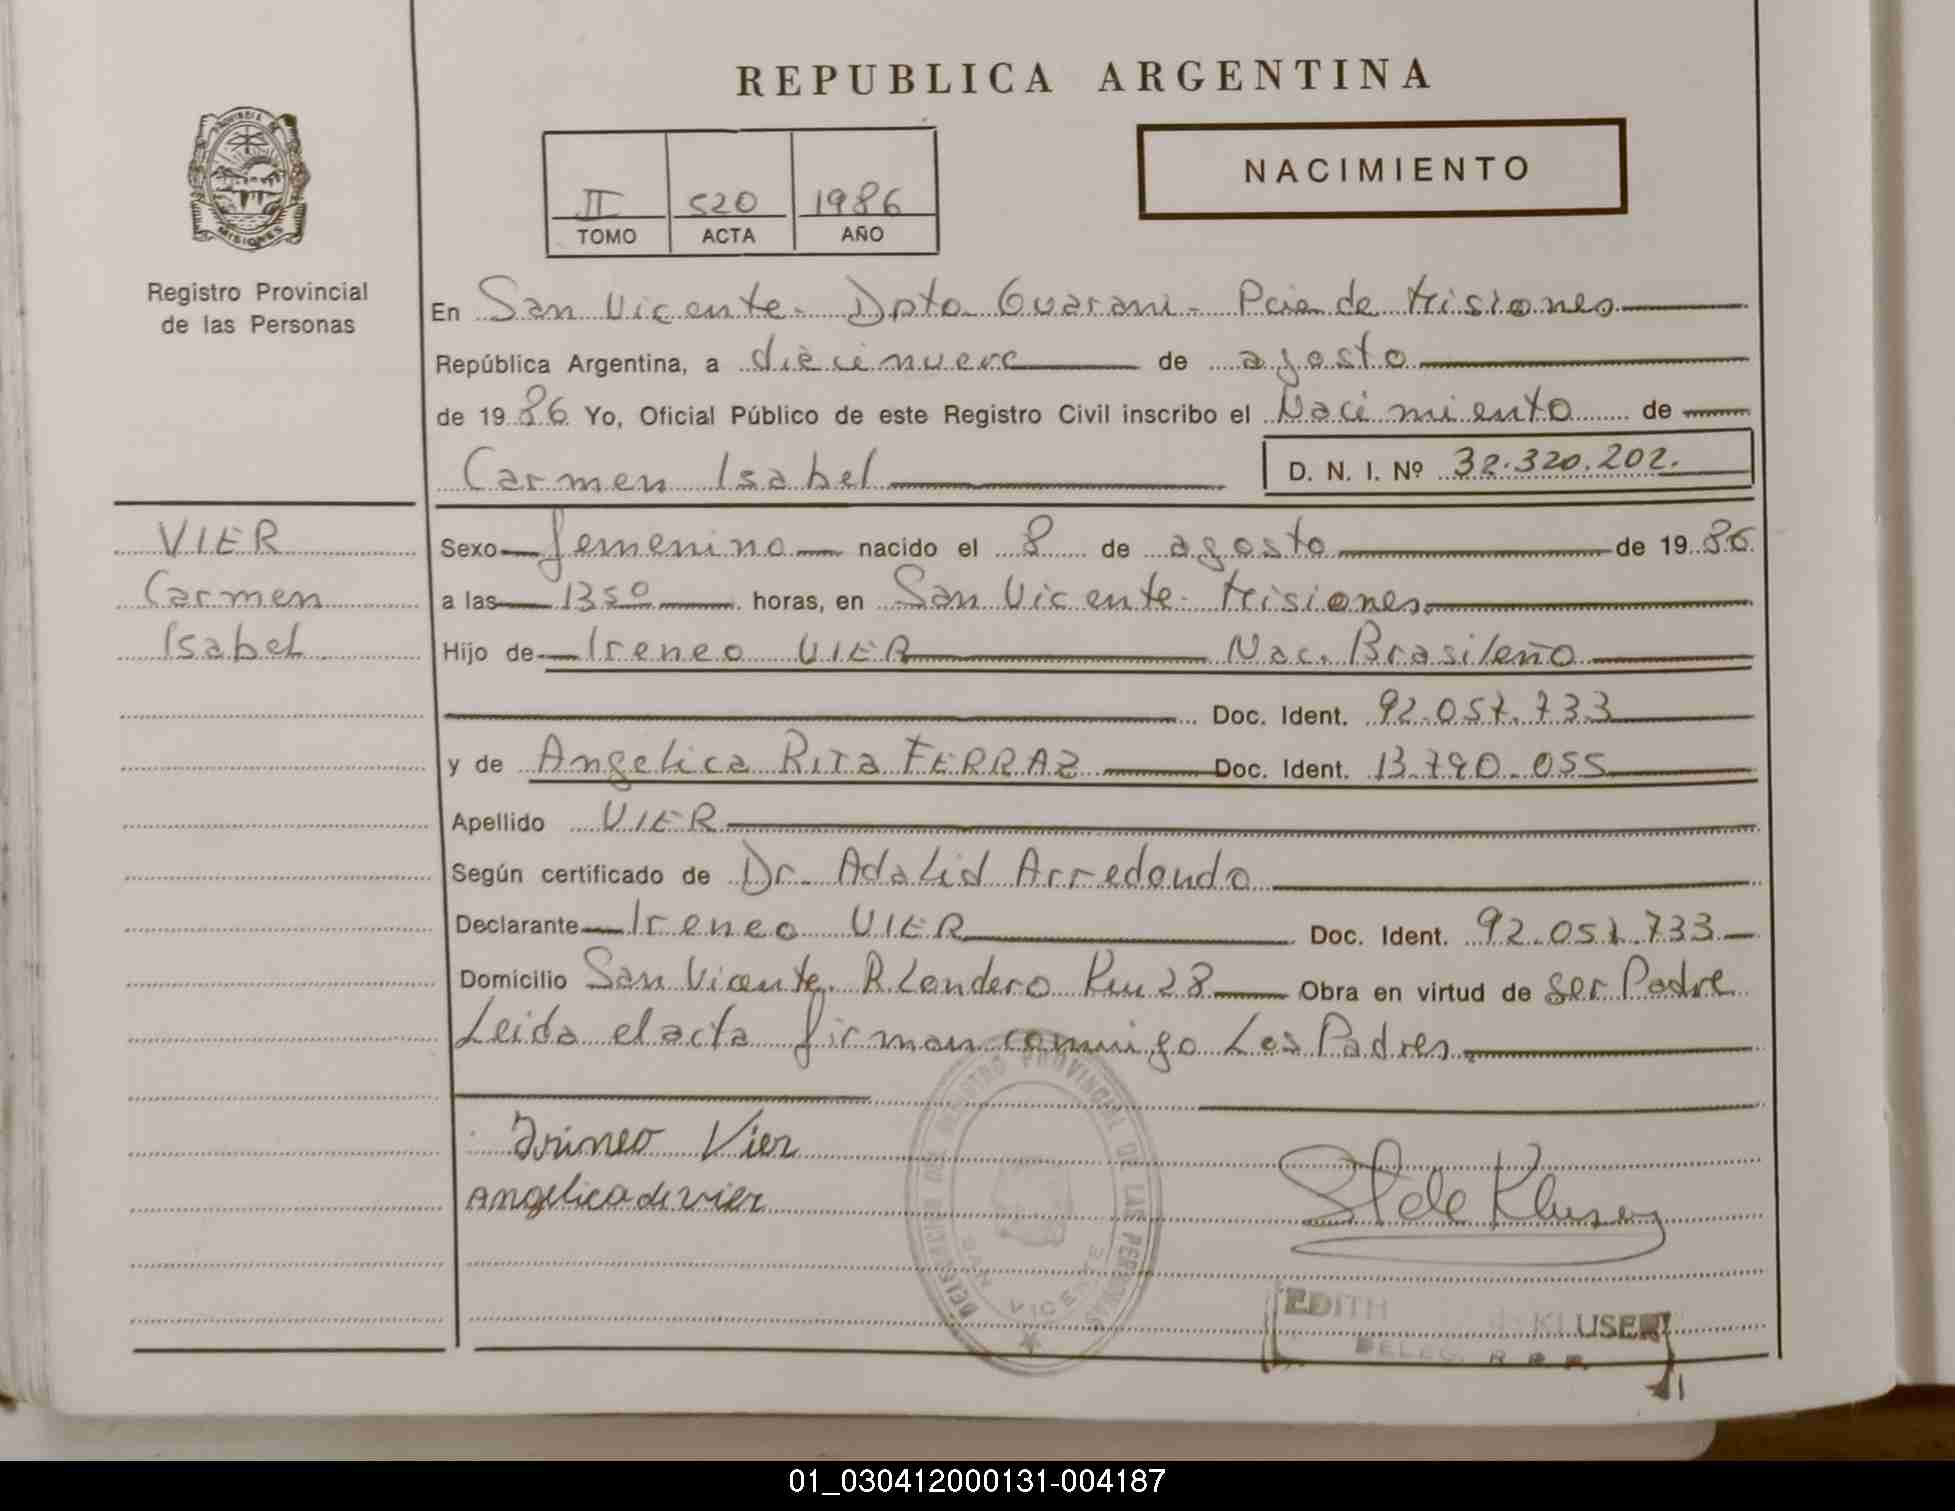 REPUBLICA ARGENTINA
PROVINCIA DE
MISIONES
Registro Provincial
de las Personas
II 520 1986
TOMO ACTA AÑO
NACIMIENTO
En San Vicente - Dpto Guarani - Pcia de Misiones
República Argentina, a diecinueve de agosto
de 1986 Yo, Oficial Público de este Registro Civil inscribo el Nacimiento de
Carmen Isabel D. N. I. Nº 32.320.202.
VIER
Carmen
Isabel
Sexo femenino nacido el 8 de agosto de 1986
a las 13 50 horas, en San Vicente - Misiones
Hijo de Ireneo VIER Nac. Brasileño
Doc. Ident. 92.057.733
y de Angelica Rita FERRAZ Doc. Ident. 13.790.055
Apellido VIER
Según certificado de Dr. Adalid Arredondo
Declarante Ireneo VIER Doc. Ident. 92.057.733
Domicilio San Vicente. R. Londero Km 28 Obra en virtud de ser Padre
Leida el acta firman conmigo Los Padres.
Irineo Vier
Angelica de vier
DELEGACION DEL REGISTRO PROVINCIAL DE LAS PERSONAS
SAN VICENTE
de Kluser
EDITH de KLUSER
DELEG. R. P. P.
01_030412000131-004187